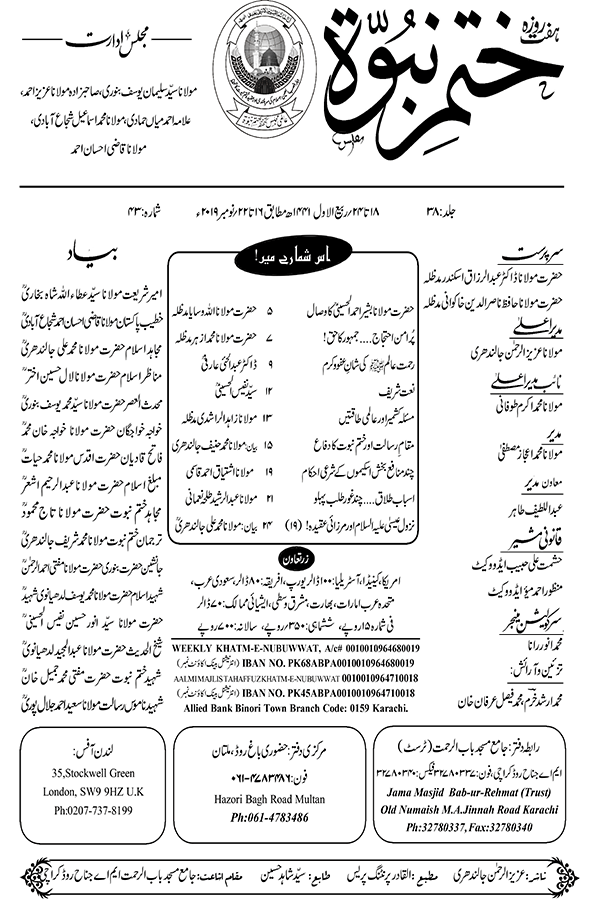 ہفت روزہ
ختم نبوۃ
مجلس ادارت
مولانا سیّد سلیمان یوسف بنوری، صاحبزادہ مولانا عزیز احمد،
علامہ احمد میاں حمادی، مولانا محمد اسماعیل شجاع آبادی،
مولانا قاضی احسان احمد
جلد: ۳۸
۱۸ تا ۲۴؍ ربیع الاول ۱۴۴۱ھ مطابق ۱۶ تا ۲۲؍ نومبر ۲۰۱۹ء
شمارہ: ۴۳
سرپرست
حضرت مولانا ڈاکٹر عبدالرزاق اسکندر مدظلہ
حضرت مولانا حافظ ناصر الدین خاکوانی مدظلہ
مدیر اعلیٰ
مولانا عزیز الرحمٰن جالندھری
نائب مدیر اعلیٰ
مولانا محمد اکرم طوفانی
مدیر
مولانا محمد اعجاز مصطفیٰ
معاون مدیر
عبداللطیف طاہر
قانونی مشیر
حشمت علی حبیب ایڈووکیٹ
منظور احمد میؤ ایڈووکیٹ
سرکولیشن منیجر
محمد انور رانا
تزئین و آرائش:
محمد ارشد خرم، محمد فیصل عرفان خان
اس شمارے میں!
حضرت مولانا بشیر احمد الحسینیؒ کا وصال ۵ حضرت مولانا اللہ وسایا مدظلہ
پُرامن احتجاج.... جمہور کا حق! ۷ حضرت مولانا محمد ازہر مدظلہ
رحمت عالم ﷺ کی شانِ عفو و کرم ۹ ڈاکٹر عبدالحئی عارفیؒ
نعت شریف ۱۲ سیّد نفیس الحسینیؒ
مسئلہ کشمیر اور عالمی طاقتیں ۱۳ مولانا زاہد الراشدی مدظلہ
مقامِ رسالت اور ختم نبوت کا دفاع ۱۵ بیان: مولانا محمد حنیف جالندھری
چند منافع بخش اسکیموں کے شرعی احکام ۱۹ مولانا اشتیاق احمد قاسمی
اسبابِ طلاق.... چند غور طلب پہلو ۲۱ مولانا عبدالرشید طلحہ نعمانی
نزول عیسیٰ علیہ السلام اور مرزائی عقیدہ! (۱۹) ۲۴ بیان: مولانا محمد علی جالندھریؒ
بیاد
امیر شریعت مولانا سیّد عطاء اللہ شاہ بخاریؒ
خطیب پاکستان مولانا قاضی احسان احمد شجاع آبادیؒ
مجاہد اسلام حضرت مولانا محمد علی جالندھریؒ
مناظر اسلام حضرت مولانا لال حسین اخترؒ
محدث العصر حضرت مولانا سیّد محمد یوسف بنوریؒ
خواجہ خواجگان حضرت مولانا خواجہ خان محمدؒ
فاتح قادیان حضرت اقدس مولانا محمد حیاتؒ
مبلغ اسلام حضرت مولانا عبدالرحیم اشعرؒ
مجاہد ختم نبوت حضرت مولانا تاج محمودؒ
ترجمان ختم نبوت مولانا محمد شریف جالندھریؒ
جانشین حضرت بنوری حضرت مولانا مفتی احمد الرحمٰنؒ
شہید اسلام حضرت مولانا محمد یوسف لدھیانوی شہیدؒ
حضرت مولانا سیّد انور حسین نفیس الحسینیؒ
شیخ الحدیث حضرت مولانا عبدالمجید لدھیانویؒ
شہید ختم نبوت حضرت مفتی محمد جمیل خانؒ
شہید ناموس رسالت مولانا سعید احمد جلال پوریؒ
زرتعاون
امریکا، کینیڈا، آسٹریلیا: ۱۰۰ ڈالر، یورپ، افریقہ: ۸۰ ڈالر، سعودی عرب،
متحدہ عرب امارات، بھارت، مشرق وسطی، ایشیائی ممالک: ۷۰ ڈالر
فی شمارہ ۱۵ روپے، ششماہی: ۳۵۰ روپے، سالانہ: ۷۰۰ روپے
WEEKLY KHATM-E-NUBUWWAT, A/c# 0010010964680019
(انٹرنیشنل بینک اکاؤنٹ نمبر) IBAN NO. PK68ABPA0010010964680019
AALMI MAJLIS TAHAFFUZ KHATM-E-NUBUWWAT 0010010964710018
(انٹرنیشنل بینک اکاؤنٹ نمبر) IBAN NO. PK45ABPA0010010964710018
Allied Bank Binori Town Branch Code: 0159 Karachi.
رابطہ دفتر: جامع مسجد باب الرحمت (ٹرسٹ)
ایم اے جناح روڈ کراچی، فون: ۳۲۷۸۰۳۳۷ فیکس: ۳۲۷۸۰۳۴۰
Jama Masjid Bab-ur-Rehmat (Trust)
Old Numaish M.A.Jinnah Road Karachi
Ph:32780337, Fax:32780340
مرکزی دفتر: حضوری باغ روڈ، ملتان
فون: ۰۶۱-۴۷۸۳۴۸۶
Hazori Bagh Road Multan
Ph:061-4783486
لندن آفس:
35,Stockwell Green
London, SW9 9HZ U.K
Ph:0207-737-8199
ناشر: عزیز الرحمٰن جالندھری مطبع: القادر پرنٹنگ پریس طابع: سیّد شاہد حسین مقام اشاعت: جامع مسجد باب الرحمت ایم اے جناح روڈ کراچی